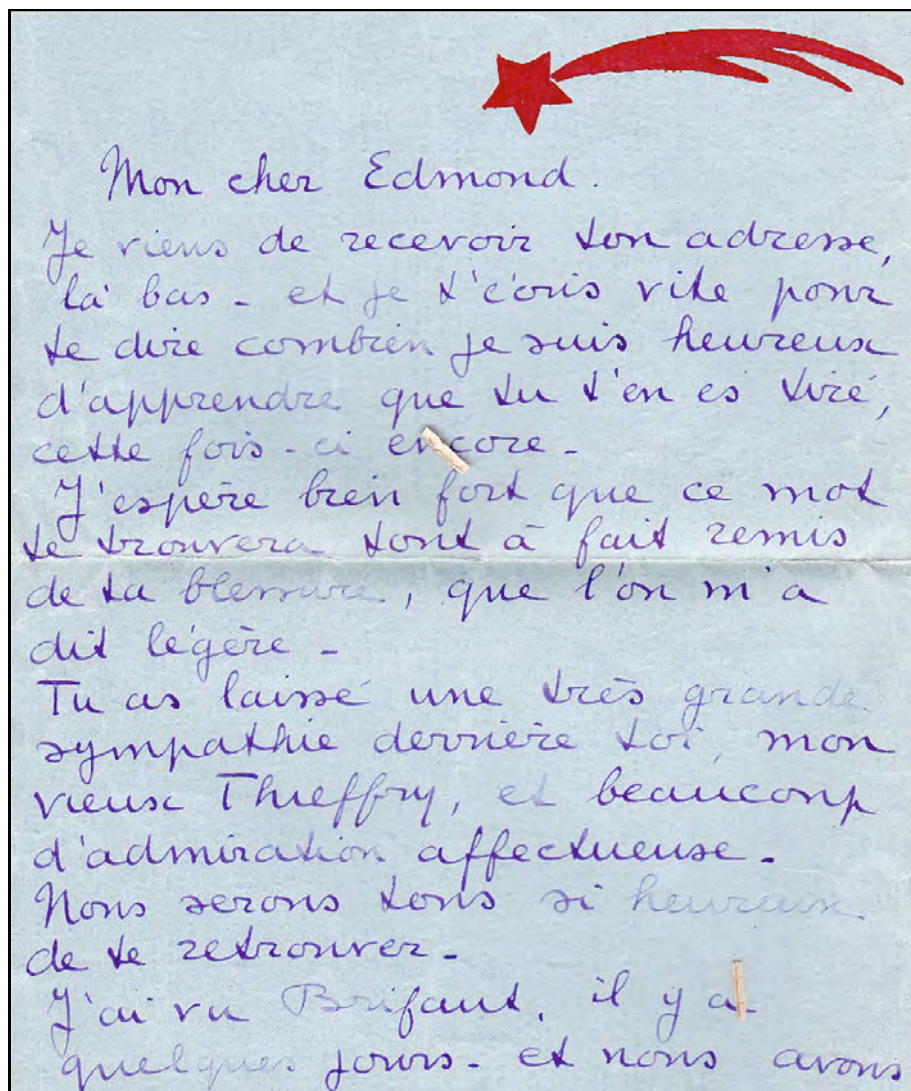 Mon cher Edmond.
Je viens de recevoir ton adresse,
là bas - et je t'écris vite pour
te dire combien je suis heureux
d'apprendre que tu t'en es tiré,
cette fois-ci encore -
J'espère bien fort que ce mot
te trouvera tout à fait remis
de ta blessure, que l'on m'a
dit légère -
Tu as laissé une très grande
sympathie derrière toi, mon
vieux Thieffry, et beaucoup
d'admiration affectueuse -
Nous serons tous si heureux
de te retrouver -
J'ai vu Brifaut, il y a
quelques jours - et nous avons